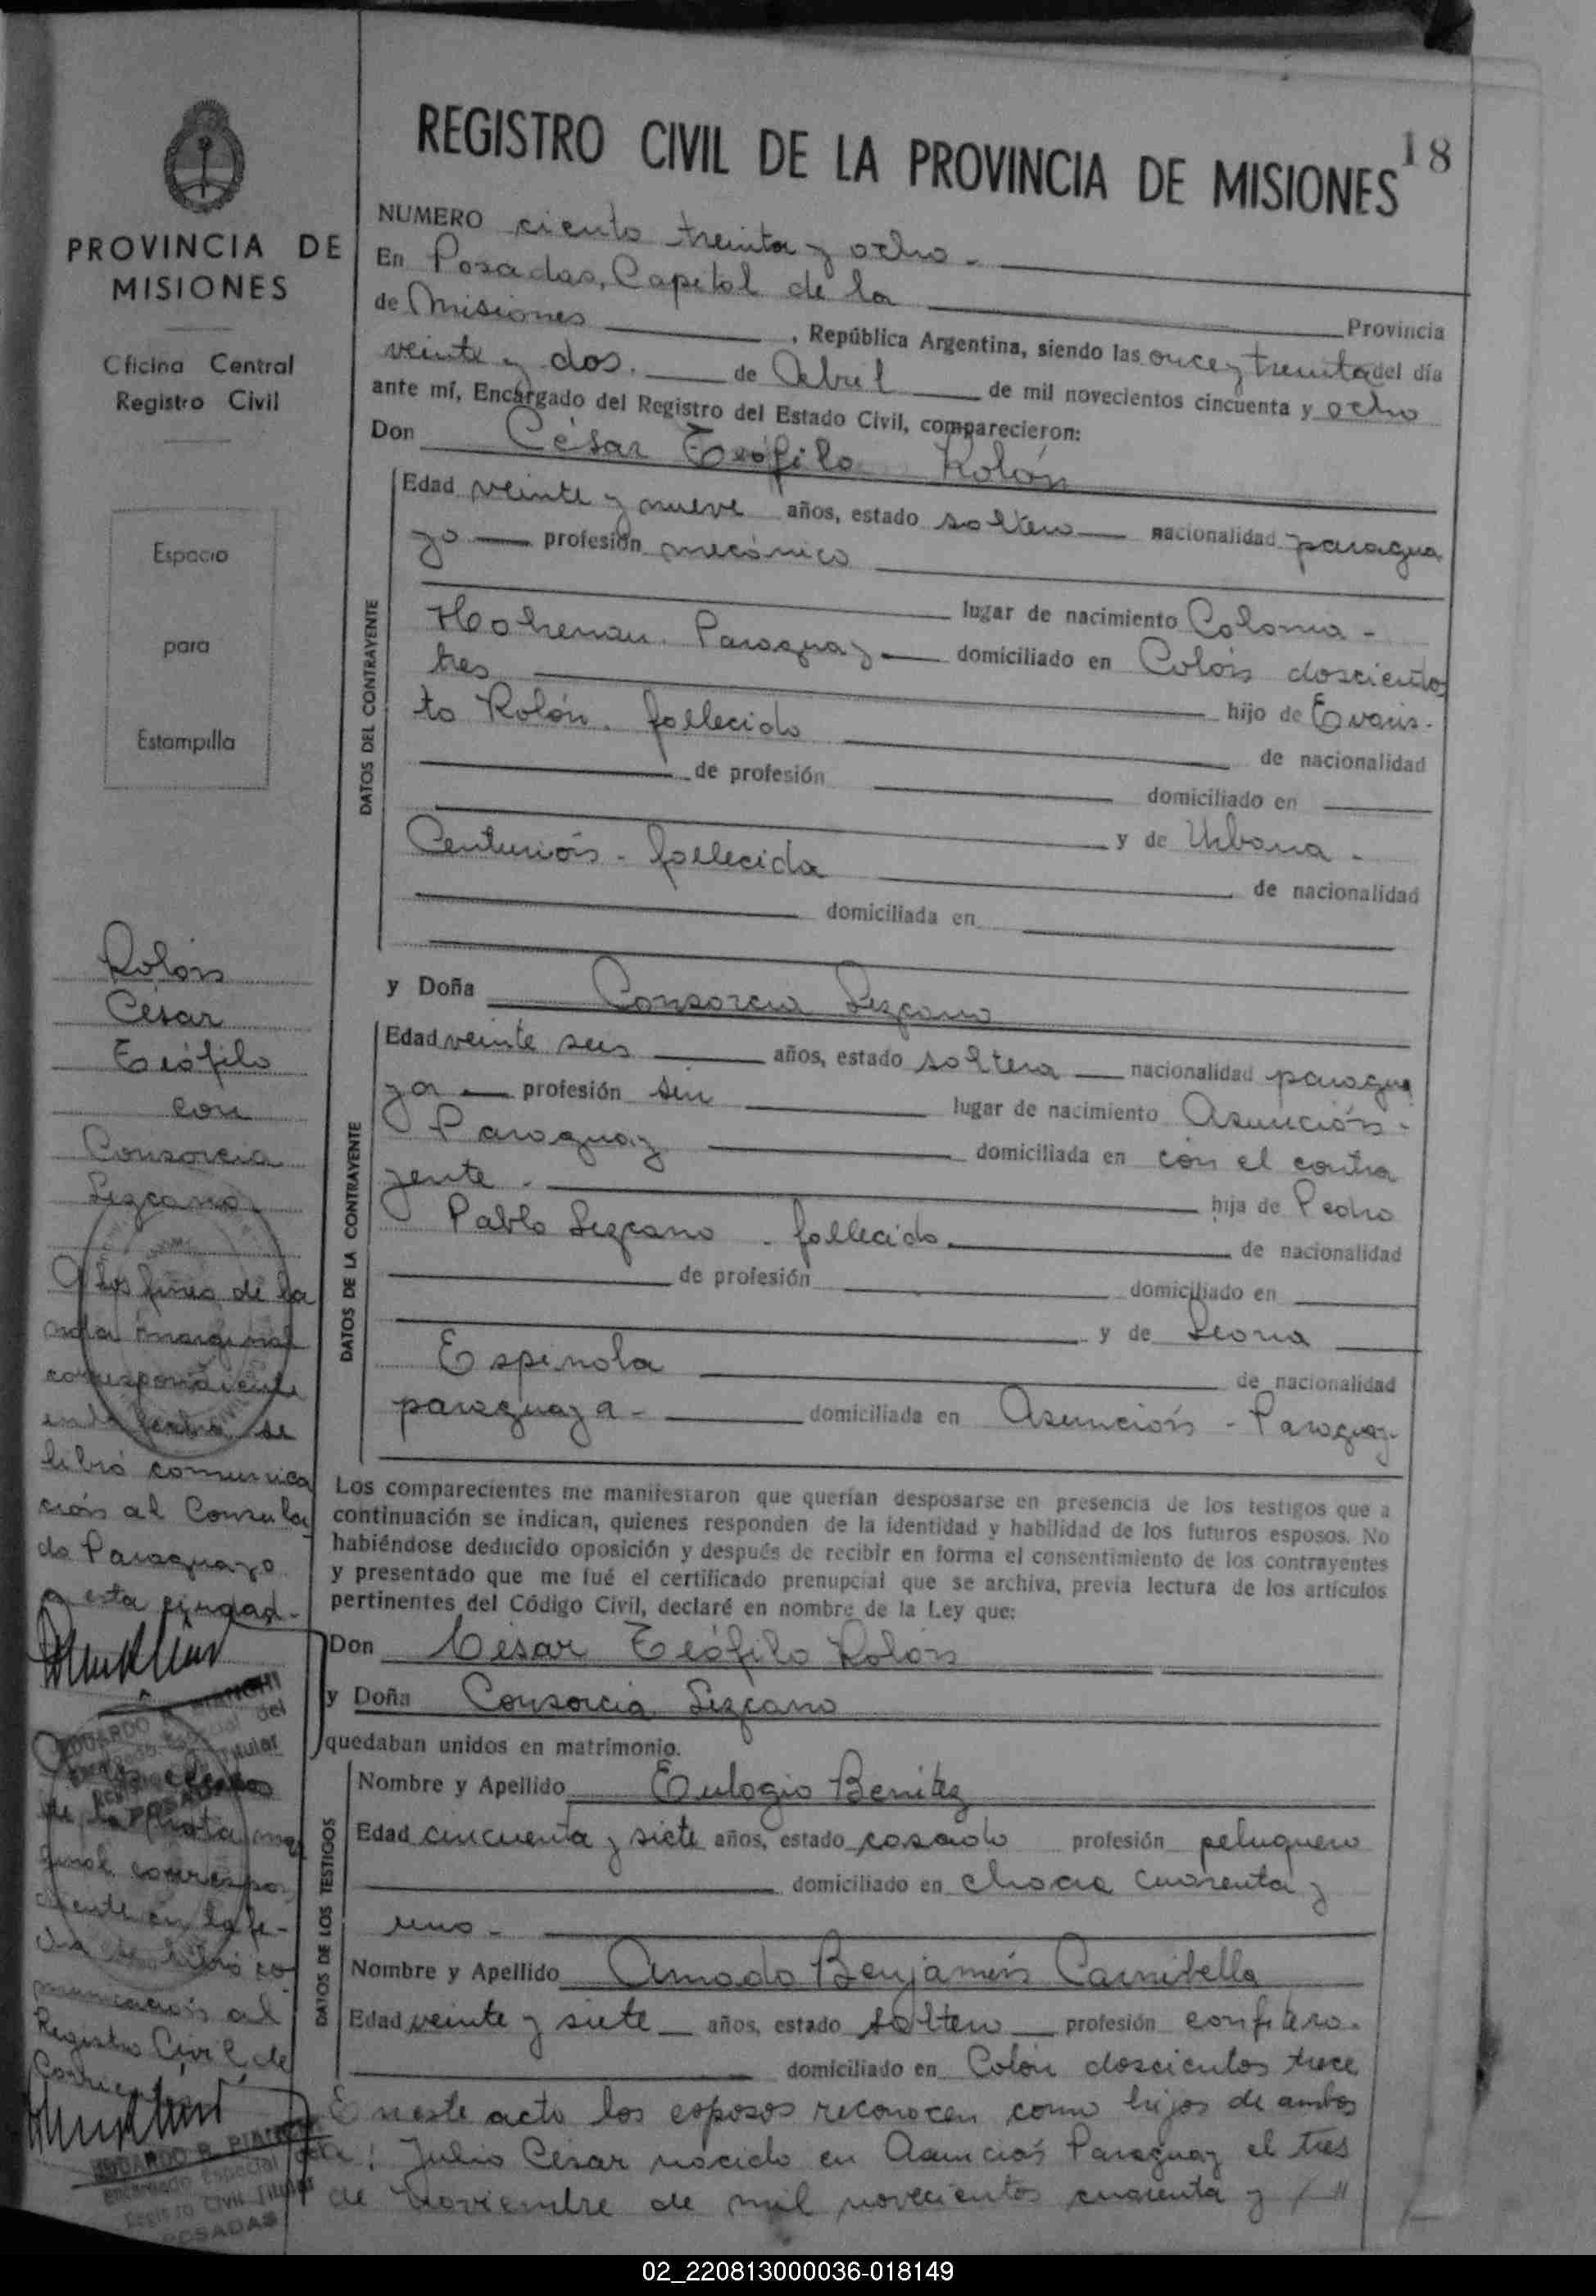 REGISTRO CIVIL DE LA PROVINCIA DE MISIONES
18
PROVINCIA DE
MISIONES
Oficina Central
Registro Civil
Espacio
para
Estampilla
NUMERO ciento treinta y ocho -
En Posadas, Capital de la Provincia
de Misiones, República Argentina, siendo las once y treinta del día
veinte y dos. de Abril de mil novecientos cincuenta y ocho
ante mí, Encargado del Registro del Estado Civil, comparecieron:
Don César Teófilo Rolón
DATOS DEL CONTRAYENTE
Edad veinte y nueve años, estado soltero nacionalidad paragua
yo profesión mecánico
lugar de nacimiento Colonia -
Hohenau. Paraguay domiciliado en Colón doscientos
tres hijo de Evaris-
to Rolón. fallecido de nacionalidad
de profesión domiciliado en
y de Urbana -
Centurión - fallecida de nacionalidad
domiciliada en
y Doña Consorcia Lezcano
DATOS DE LA CONTRAYENTE
Edad veinte seis años, estado soltera nacionalidad paragua
ya profesión sin lugar de nacimiento Asunción -
Paraguay domiciliada en con el contra
yente. hija de Pedro
Pablo Lezcano - fallecido de nacionalidad
de profesión domiciliado en
y de Leona
Espinola de nacionalidad
paraguaya - domiciliada en Asunción - Paraguay-
Los comparecientes me manifestaron que querían desposarse en presencia de los testigos que a
continuación se indican, quienes responden de la identidad y habilidad de los futuros esposos. No
habiéndose deducido oposición y después de recibir en forma el consentimiento de los contrayentes
y presentado que me fué el certificado prenupcial que se archiva, previa lectura de los artículos
pertinentes del Código Civil, declaré en nombre de la Ley que:
Don César Teófilo Rolón
y Doña Consorcia Lezcano
quedaban unidos en matrimonio.
DATOS DE LOS TESTIGOS
Nombre y Apellido Eulogio Benitez
Edad cincuenta y siete años, estado casado profesión peluquero
domiciliado en chacra cuarenta y
uno -
Nombre y Apellido Amado Benjamín
Edad veinte y siete años, estado soltero profesión confitero.
domiciliado en Colón doscientos trece
En este acto los esposos reconocen como hijos de ambos
: Julio César nacido en Asunción Paraguay el tres
de Noviembre de mil novecientos cuarenta y
Rolón
César
Teófilo
con
Consorcia
Lezcano
A los fines de la
nota marginal
correspondiente
en la fecha se
libró comunica
ción al Consula
do Paraguayo
esta ciudad -
de la nota mar
ginal correspon
diente en la fe-
cha se libró co
municación al
Registro Civil de
Corrientes
Encargado Especial del
Registro Civil Titular
POSADAS
02_220813000036-018149